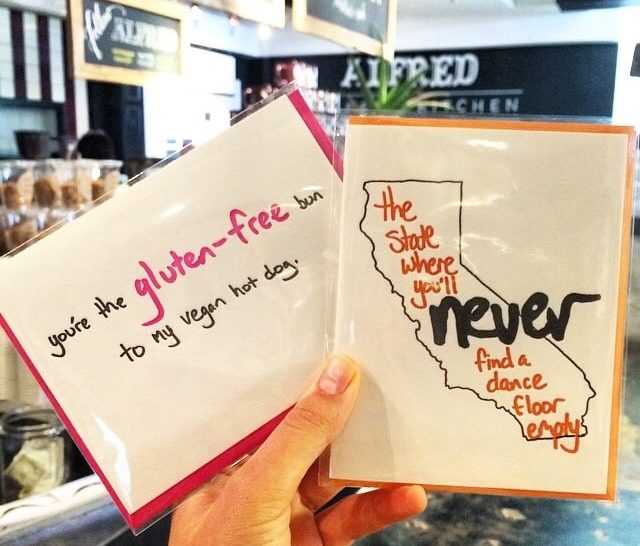 ALFRED
ALFRED
KITCHEN
you're the gluten-free bun
to my vegan hot dog.
the
state
where
you'll
never
find a
dance
floor
empty